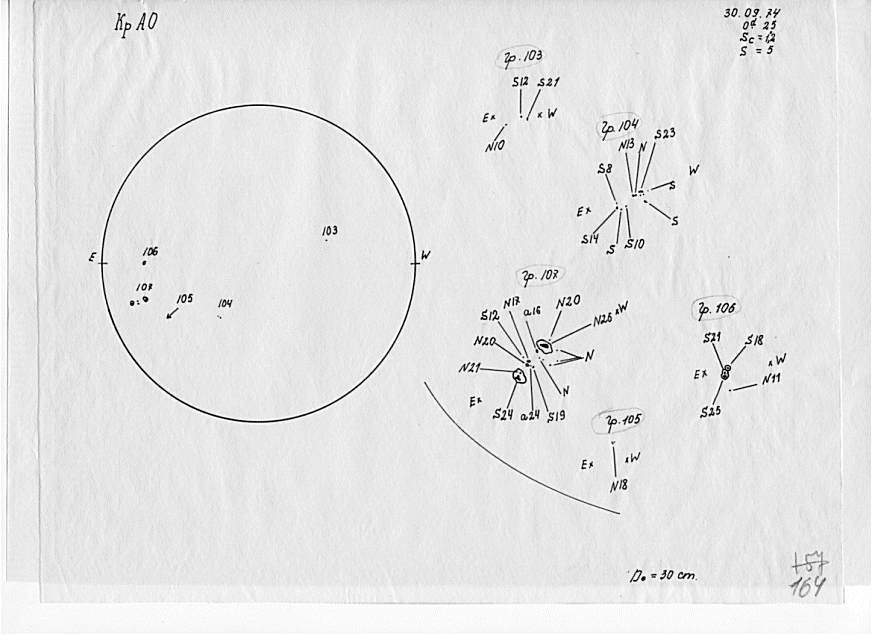 Кр АО
30.09.74
Sc = 12
S = 5
E
W
103
106
107
105
104
Гр. 103
S12 S21
Ex
xW
N10
Гр. 104
N13 N S23
S8
W
S
Ex
S
S14 S S10
Гр. 107
N17 a16 N20
S12
N26 xW
N20
N
N21
Ex
N
S24 a24 S19
Гр. 106
S21 S18
xW
Ex
N11
S25
Гр. 105
Ex xW
N18
D₀ = 30 cm.
157
164